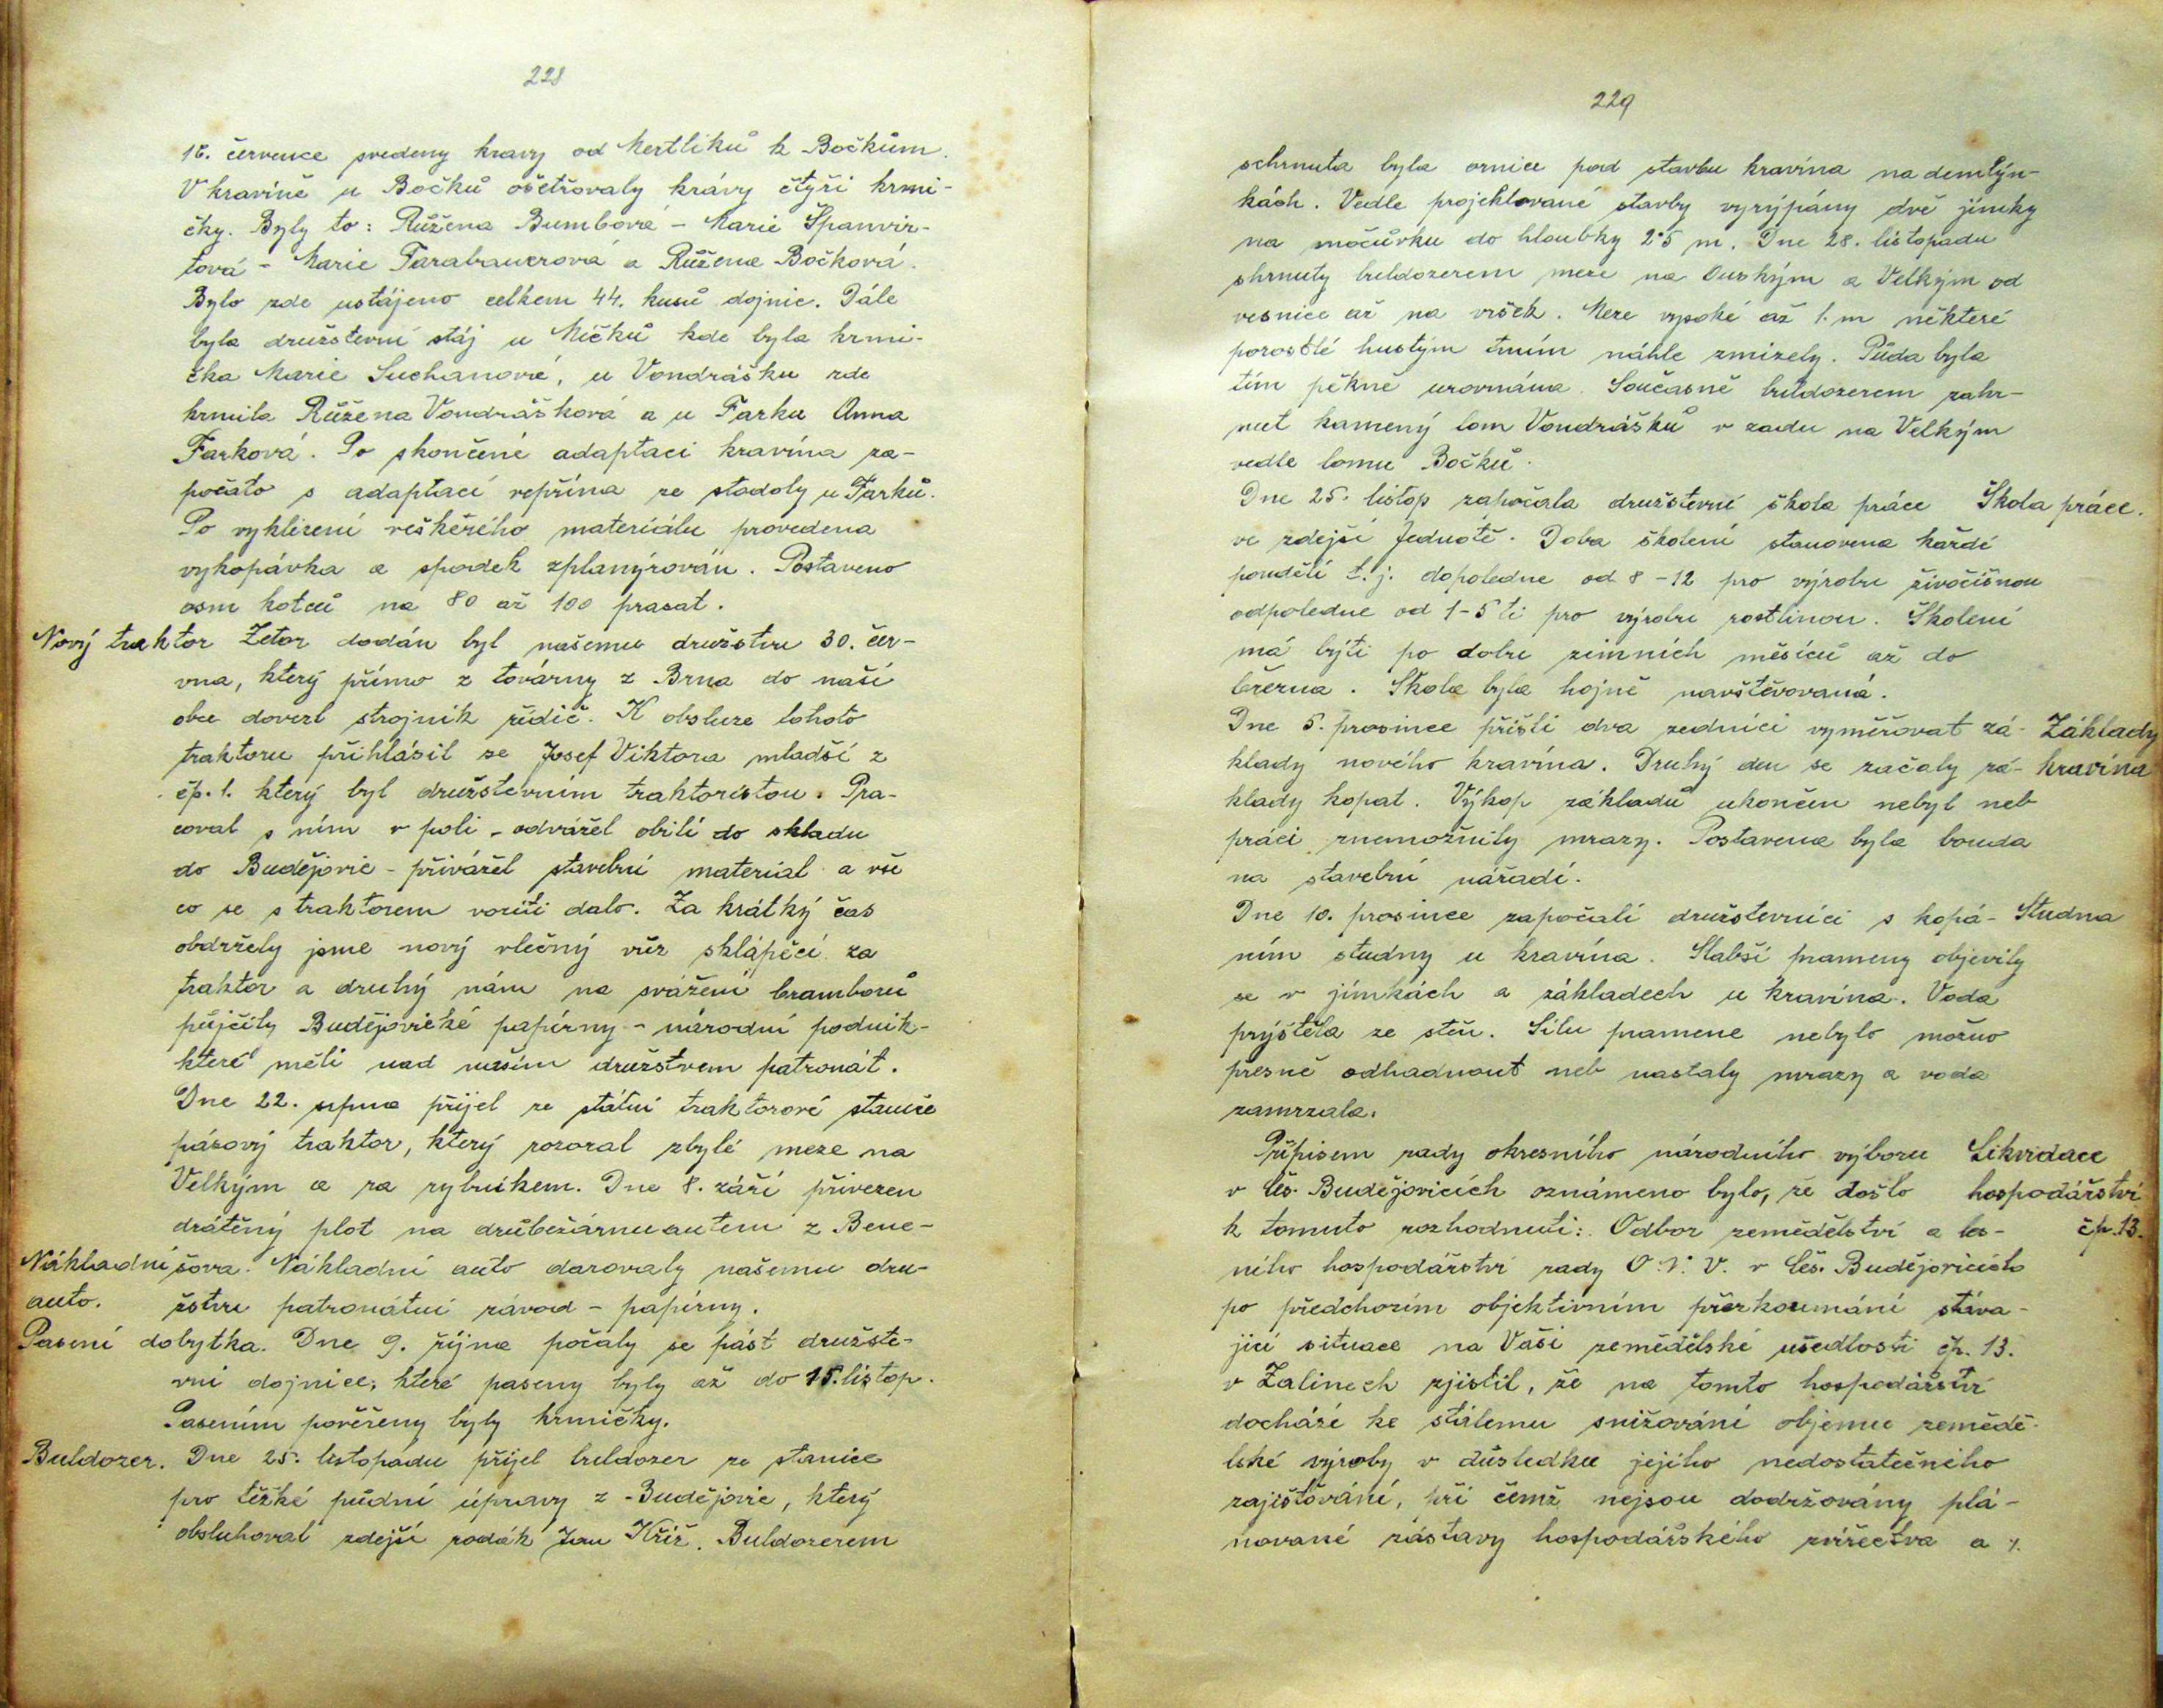 228
16. července svedeny krávy od Mertlíků k Bočkům.
V kravíně u Bočků ošetřovaly krávy čtyři krmi-
čky. Byly to: Růžena Bumbová - Marie Španvir-
tová - Marie Farabauerová a Růžena Bočková.
Bylo zde ustájeno celkem 44. kusů dojnic. Dále
byla družstevní stáj u Mičků kde byla krmi-
čka Marie Suchanová, u Vondrášku zde
krmila Růžena Vondrášková a u Farku Anna
Farková. Po skončené adaptaci kravína za-
počato s adaptací vepřína ze stodoly u Farků.
Po vyklizení veškerého materiálu provedena
vykopávka a spodek zplanýrován. Postaveno
osm kotců na 80 až 100 prasat.
Nový traktor Zetor dodán byl našemu družstvu 30. čer-
vna, který přímo z továrny z Brna do naší
obce dovezl strojník řidič. K obsluze tohoto
traktoru přihlásil se Josef Viktora mladší z
čp. 1. který byl družstevním traktoristou. Pra-
coval s ním v poli - odvážel obilí do skladu
do Budějovic - přivážel stavební material a vše
co se s traktorem voziti dalo. Za krátký čas
obdržely jsme nový vlečný vůz sklápěcí za
traktor a druhý nám na svážení bramborů
půjčily Budějovické papírny - národní podnik-
které měli nad naším družstvem patronát.
Dne 22. srpna přijel ze státní traktorové stanice
pásový traktor, který rozoral zbylé meze na
Velkým a za rybníkem. Dne 8. září přivezen
drátěný plot na drůbežárnu autem z Bene-
Nákladní šova. Nákladní auto darovaly našemu dru-
auto. žstvu patronátní závod - papírny.
Pasení dobytka. Dne 9. října počaly se pást družste-
vní dojnice, které paseny byly až do 15. listop.
Pasením pověřeny byly krmičky.
Buldozer. Dne 25. listopadu přijel buldozer ze stanice
pro těžké půdní úpravy z Budějovic, který
obsluhoval zdejší rodák Jan Kříž. Buldozerem
229
schrnuta byla ornice pod stavbu kravína na demlýn-
kách. Vedle projektované stavby vyrýpány dvě jímky
na močůvku do hloubky 2·5 m. Dne 28. listopadu
shrnuty buldozerem meze na Ouským a Velkým od
vesnice až na vršek. Meze vysoké až 1.m některé
porostlé hustým trním náhle zmizely. Půda byla
tím pěkně urovnána. Současně buldozerem zahr-
nut kamený lom Vondrášků v zadu na Velkým
vedle lomu Bočků.
Dne 25. listop započala družstevní škola práce Škola práce.
ve zdejší Jednotě. Doba školení stanovena každé
pondělí t.j. dopoledne od 8 - 12 pro výrobu živočišnou
odpoledne od 1 - 5 ti pro výrobu rostlinou. Školení
má býti po dobu zimních měsíců až do
března. Škola byla hojně navštěvovaná.
Dne 5. prosince přišli dva zedníci vyměřovat zá- Základy
klady nového kravína. Druhý den se začaly zá- kravína
klady kopat. Výkop základů ukončen nebyl neb
práci znemožnily mrazy. Postavena byla bouda
na stavební nářadí.
Dne 10. prosince započali družstevníci s kopá- Studna
ním studny u kravína. Slabší prameny objevily
se v jímkách a základech u kravína. Voda
prýštěla ze stěn. Sílu pramene nebylo možno
přesně odhadnout neb nastaly mrazy a voda
zamrzala.
Přípisem rady okresního národního výboru Likvidace
v Čes. Budějovicích oznámeno bylo, že došlo hospodářství
k tomuto rozhodnutí: Odbor zemědělství a les- čp. 13.
ního hospodářství rady O.N.V. v Čes. Budějovicích
po předchozím objektivním přezkoumání stáva-
jící situace na Vaší zemědělské usedlosti čp. 13.
v Zalinech zjistil, že na tomto hospodářství
dochází ke stálemu snižování objemu zemědě-
lské výroby v důsledku jejího nedostatečného
zajišťování, při čemž nejsou dodržovány plá-
nované zástavy hospodářského zvířectva a /.